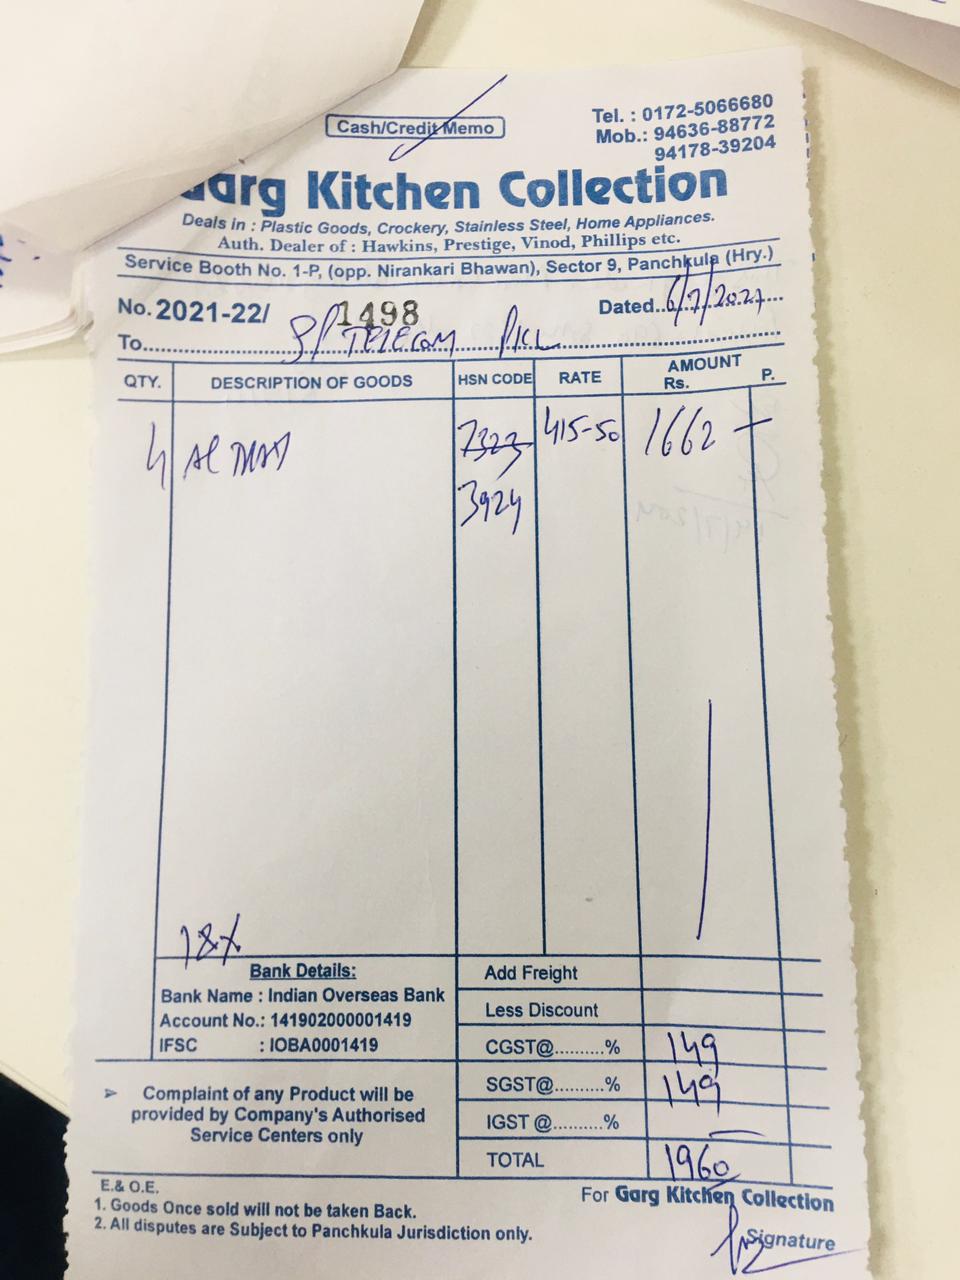 Cash/Credit Memo
Tel. : 0172-5066680
Mob.: 94636-88772
94178-39204
Garg Kitchen Collection
Deals in : Plastic Goods, Crockery, Stainless Steel, Home Appliances.
Auth. Dealer of : Hawkins, Prestige, Vinod, Phillips etc.
Service Booth No. 1-P, (opp. Nirankari Bhawan), Sector 9, Panchkula (Hry.)
No. 2021-22/ 1498 Dated..6/7/2021....
To........ TELECOM PKL
QTY. DESCRIPTION OF GOODS HSN CODE RATE AMOUNT
Rs. P.
4 7323 415-50 1662 —
3924
18%
Bank Details:
Bank Name : Indian Overseas Bank
Account No.: 141902000001419
IFSC : IOBA0001419
Add Freight
Less Discount
CGST@.........% 149
SGST@.........% 149
IGST @.........% —
TOTAL 1960
➢ Complaint of any Product will be
provided by Company's Authorised
Service Centers only
E.& O.E.
1. Goods Once sold will not be taken Back.
2. All disputes are Subject to Panchkula Jurisdiction only.
For Garg Kitchen Collection
Signature